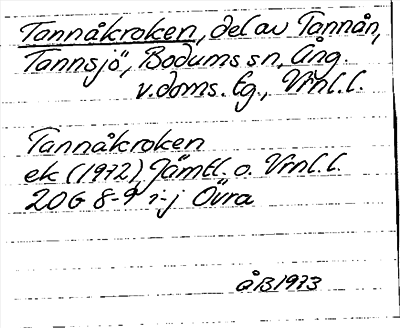 Tannåkroken, del av Tannån,
Tannsjö, Bodums sn, Ång.
v. doms. tg., Vrnl. l.
Tannåkroken
ek (1972) Jämtl. o. Vrnl. l.
20G 8-9 i-j Övra
ÅB 1973